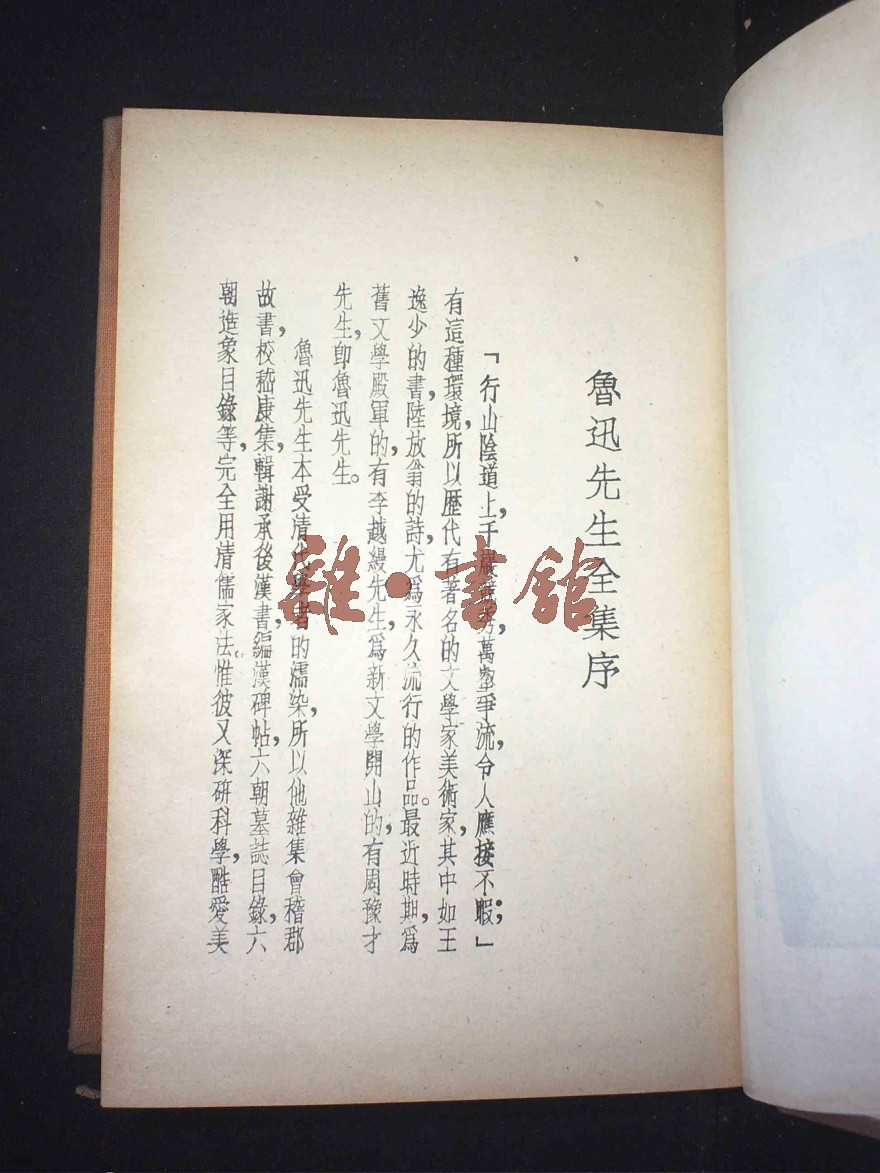 魯迅先生全集序
「行山陰道上，千巖競秀，萬壑爭流，令人應接不暇；」
有這種環境，所以歷代有著名的文學家美術家，其中如王
逸少的書，陸放翁的詩，尤爲永久流行的作品。最近時期，爲
舊文學殿軍的，有李越縵先生，爲新文學開山的，有周豫才
先生，卽魯迅先生。
魯迅先生本受清代學者的濡染，所以他雜集會稽郡
故書，校嵇康集，輯謝承後漢書，編漢碑帖，六朝墓誌目錄，六
朝造象目錄等，完全用清儒家法。惟彼又深研科學，酷愛美
雜·書館